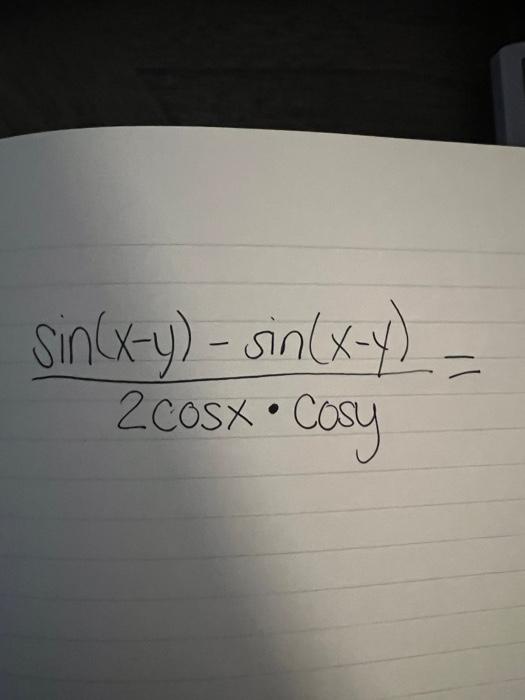 sin(x-y) - sin(x-y) =
2cosx • cosy